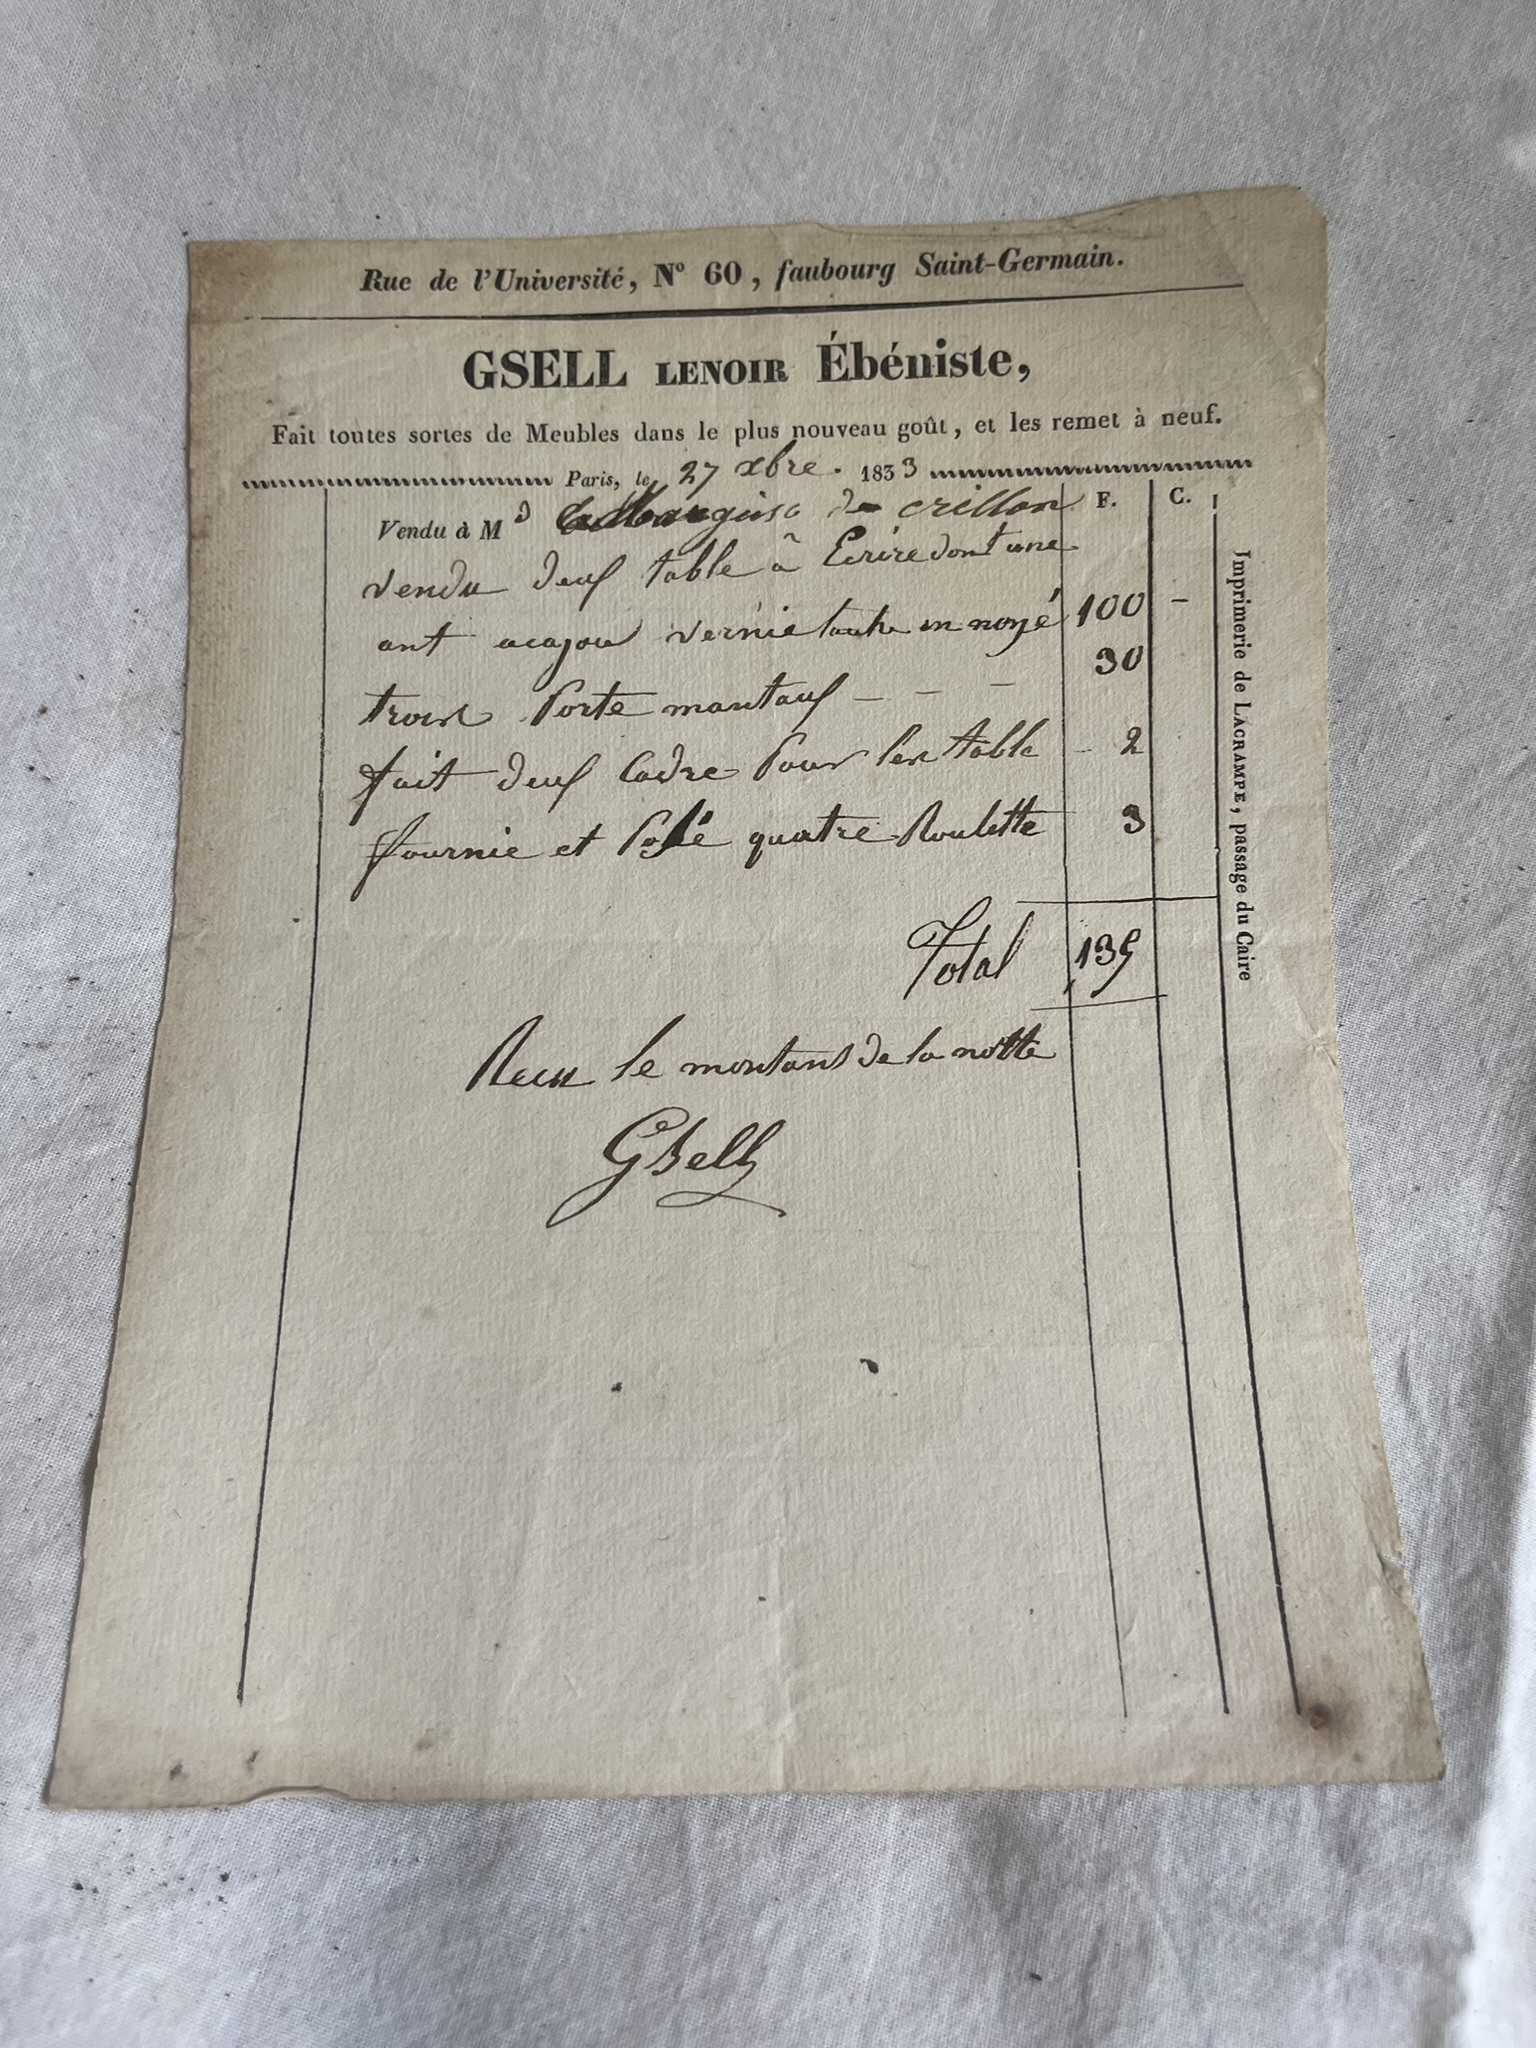 Rue de l'Université, N° 60, faubourg Saint-Germain.
GSELL LENOIR Ébéniste,
Fait toutes sortes de Meubles dans le plus nouveau goût, et les remet à neuf.
Paris, le 27 xbre. 1833
Vendu à Md la Marquise de crillon F. C.
vendu deuf table à Ecrire dont une
ant acajou vernie lautre en noyé 100 -
trois Porte mantauf - - - 30
fait deuf Cadre Pour les table - 2
fournie et Posé quatre Roulette 3
Total 135
Recu le montant de la notte
Gsell
Imprimerie de LACRAMPE, passage du Caire